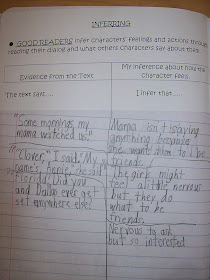 INFERRING
• GOOD READERS infer characters' feelings and actions through
reading their dialog and what others characters say about them.
Evidence from the Text
My inference about how the
Character feels...
The text says....
I infer that ....
"Some mornings my
mama watched us."
Mama isn't saying
anything because
she want them to be
friends.
"Clover," I said. "My
name's, Annie, she said
Did you
and ever get
sit anywhere else.
The girls might
feel a little nervous
but, they do
what to be
friends.
Nervous to ask
but so interested